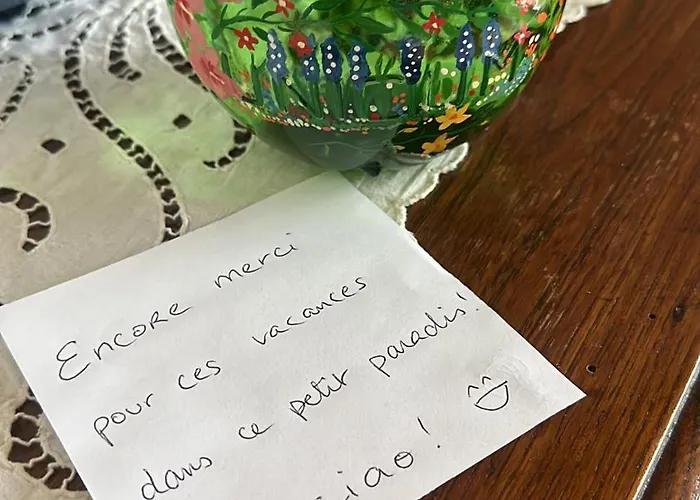 Encore merci
pour ces vacances
dans ce petit paradis!
iao!